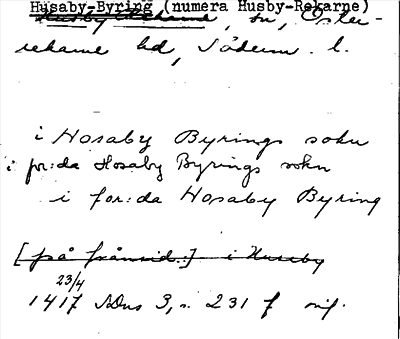 Husaby-Byring (numera Husby-Rekarne)
Husby-Rekarne, sn, Öster-
rekarne hd, Söderm. l.
i Hosaby Byrings sokn
i for:da Hosaby Byrings sokn
i for:da Hosaby Byring
[på frånsid.] i Huseby
23/4
1417 SDns 3, s. 231 f